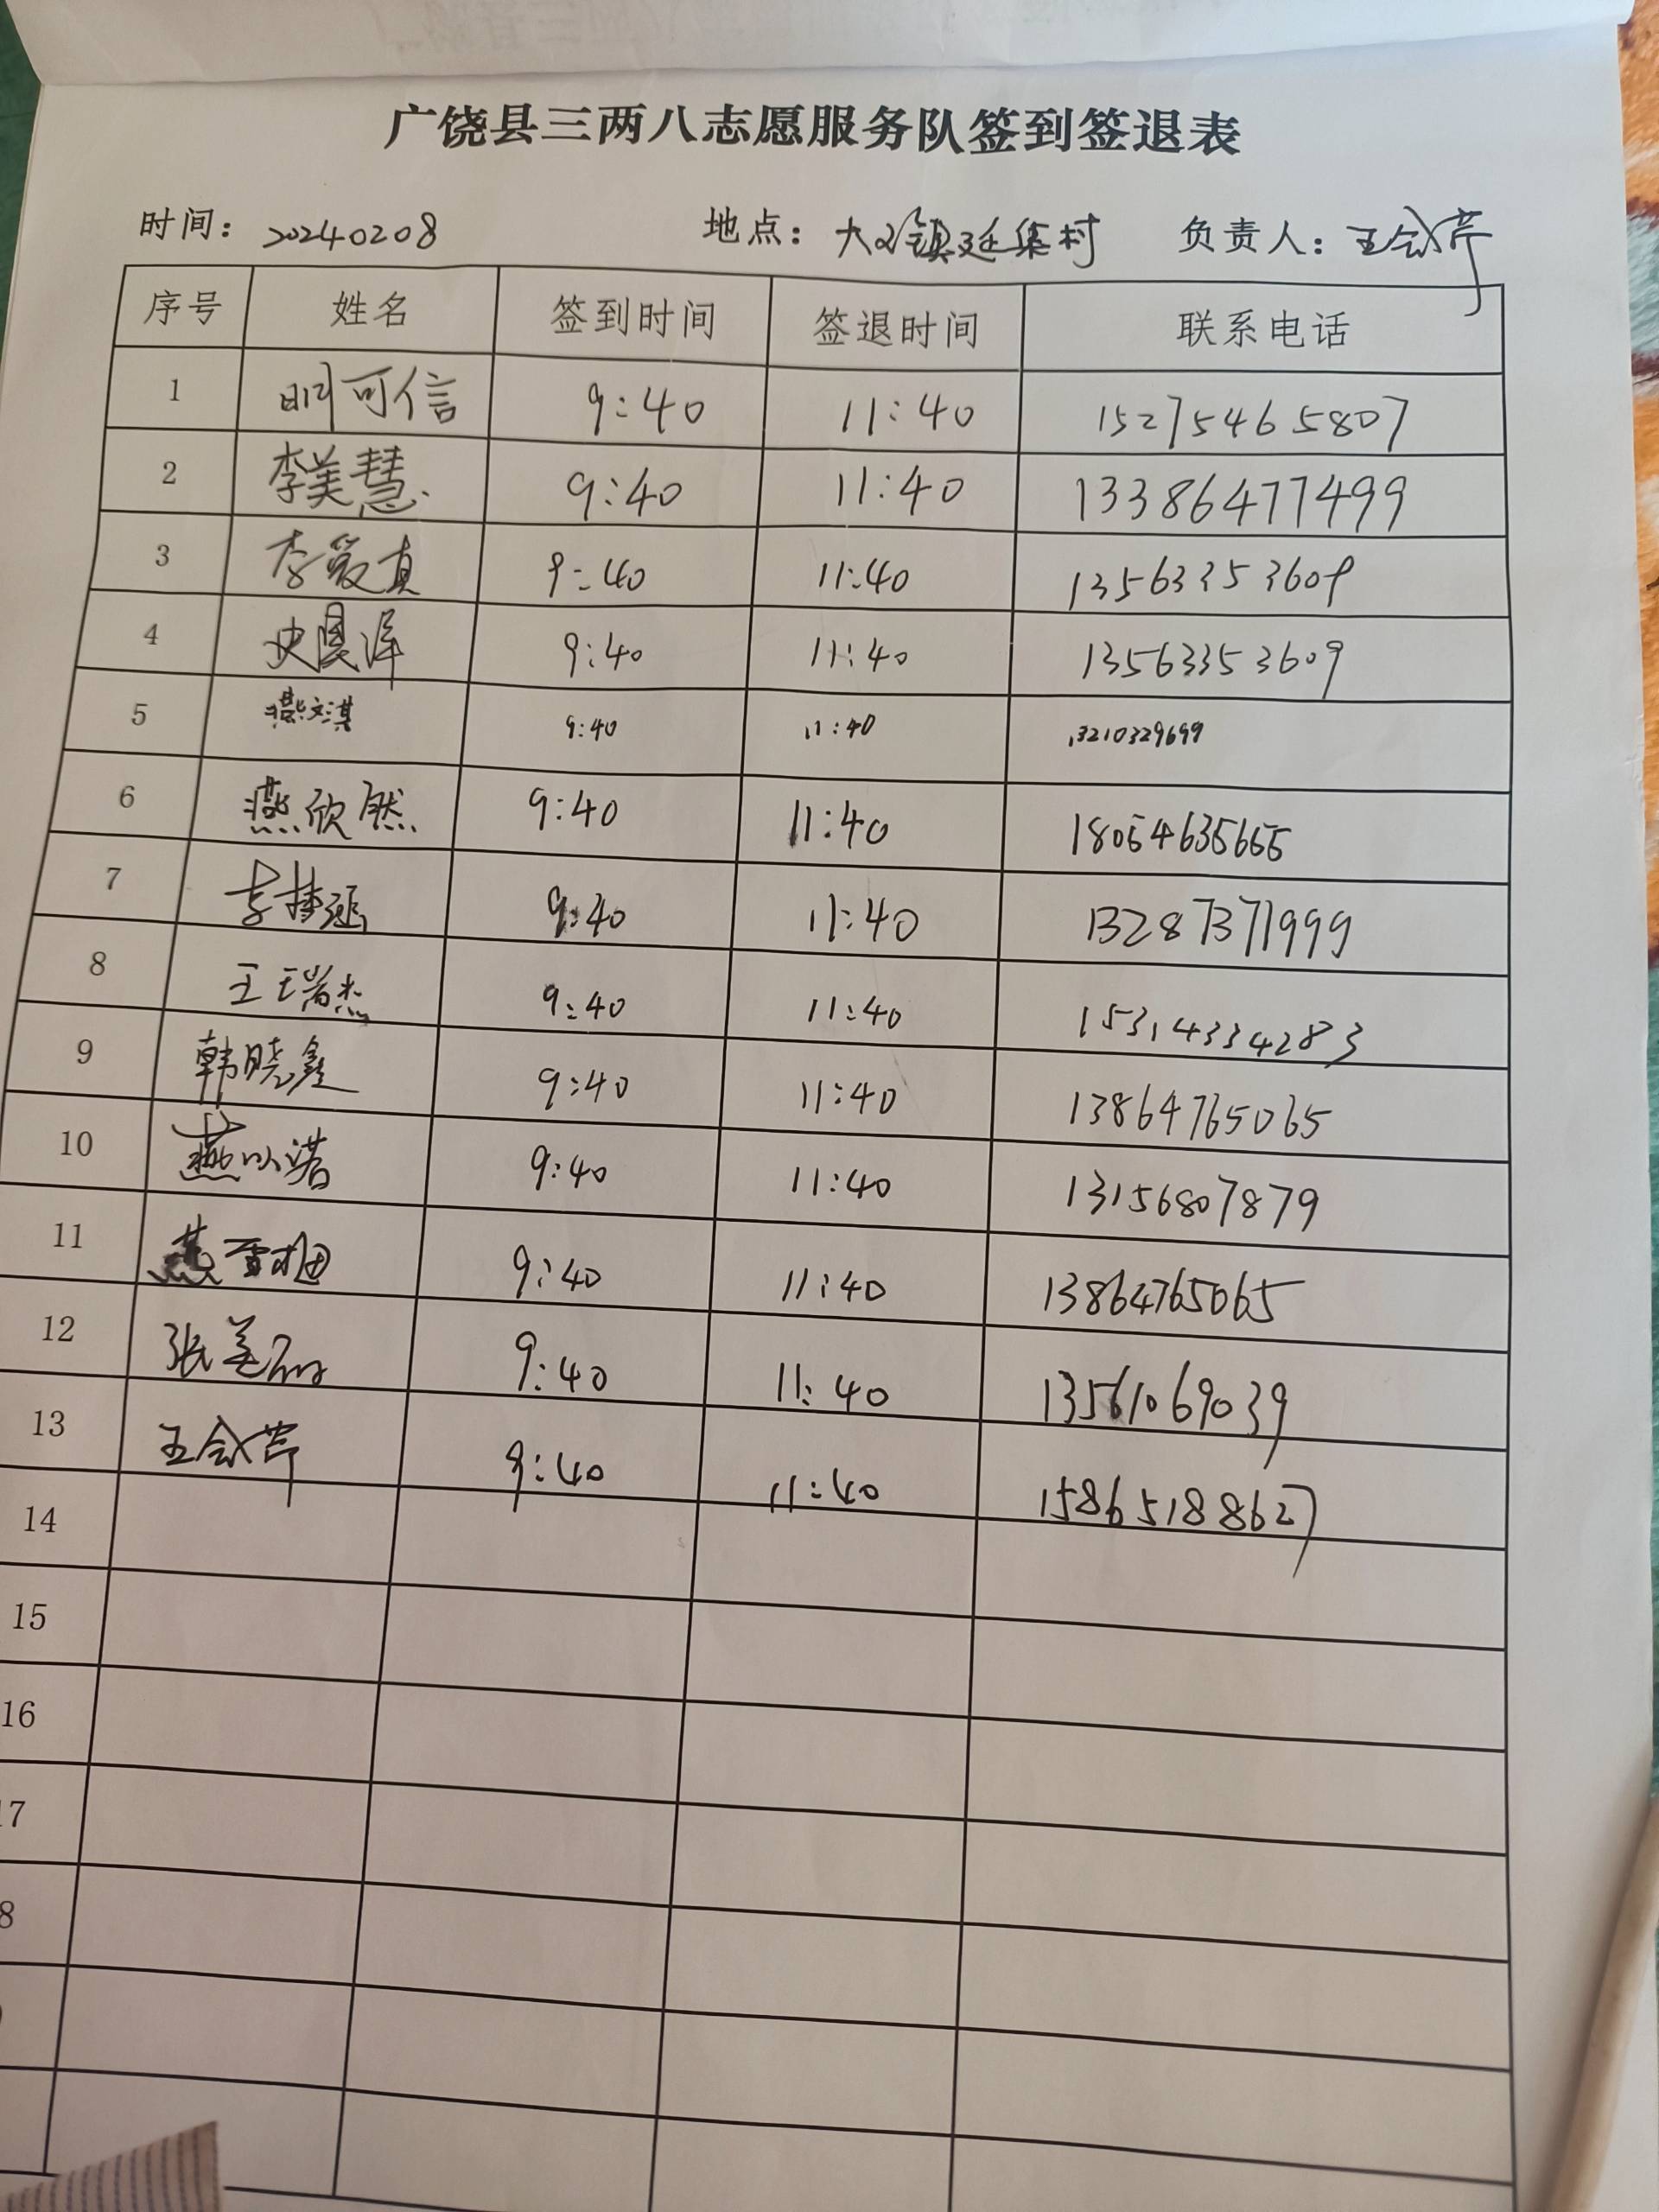 广饶县三两八志愿服务队签到签退表
时间：20240208 地点：大码镇延集村 负责人：王会芹
序号 姓名 签到时间 签退时间 联系电话
1 明可信 9:40 11:40 15275465807
2 李美慧 9:40 11:40 13386477499
3 李爱真 9:40 11:40 13563353609
4 史恩泽 9:40 11:40 13563353609
5 燕文淇 9:40 11:40 13210329699
6 燕欣然 9:40 11:40 18054635655
7 李梦涵 9:40 11:40 13287371999
8 王瑞杰 9:40 11:40 15314334283
9 韩晓鑫 9:40 11:40 13864765065
10 燕以诺 9:40 11:40 13156807879
11 燕雪梅 9:40 11:40 13864765065
12 张美丽 9:40 11:40 13561069039
13 王会芹 9:40 11:40 15865188627
14
15
16
17
8